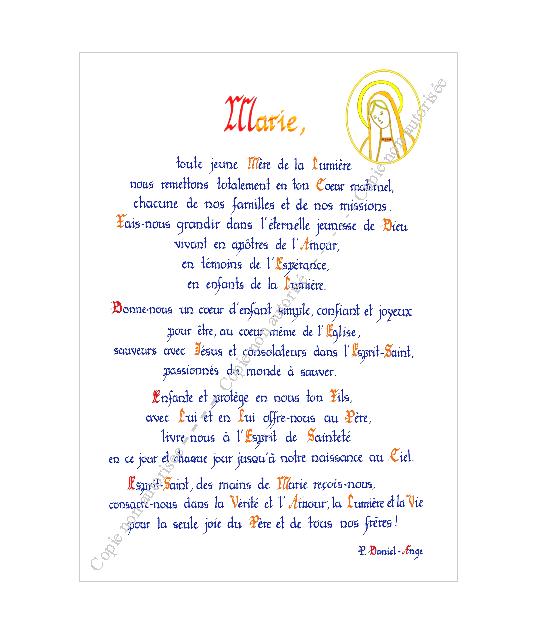 Marie,
toute jeune Mère de la Lumière
nous remettons totalement en ton Coeur maternel,
chacune de nos familles et de nos missions.
Fais-nous grandir dans l'éternelle jeunesse de Dieu
vivant en apôtres de l'Amour,
en témoins de l'Espérance,
en enfants de la Lumière.
Donne-nous un coeur d'enfant simple, confiant et joyeux
pour être, au coeur même de l'Eglise,
sauveurs avec Jésus et consolateurs dans l'Esprit-Saint,
passionnés du monde à sauver.
Enfante et protège en nous ton Fils,
avec Lui et en Lui offre-nous au Père,
livre-nous à l'Esprit de Sainteté
en ce jour et chaque jour jusqu'à notre naissance au Ciel.
Esprit-Saint, des mains de Marie reçois-nous,
consacre-nous dans la Vérité et l'Amour, la Lumière et la Vie
pour la seule joie du Père et de tous nos frères!
P. Daniel-Ange
Copie non autorisée - - - - Copie non autorisée - - - - Copie non autorisée